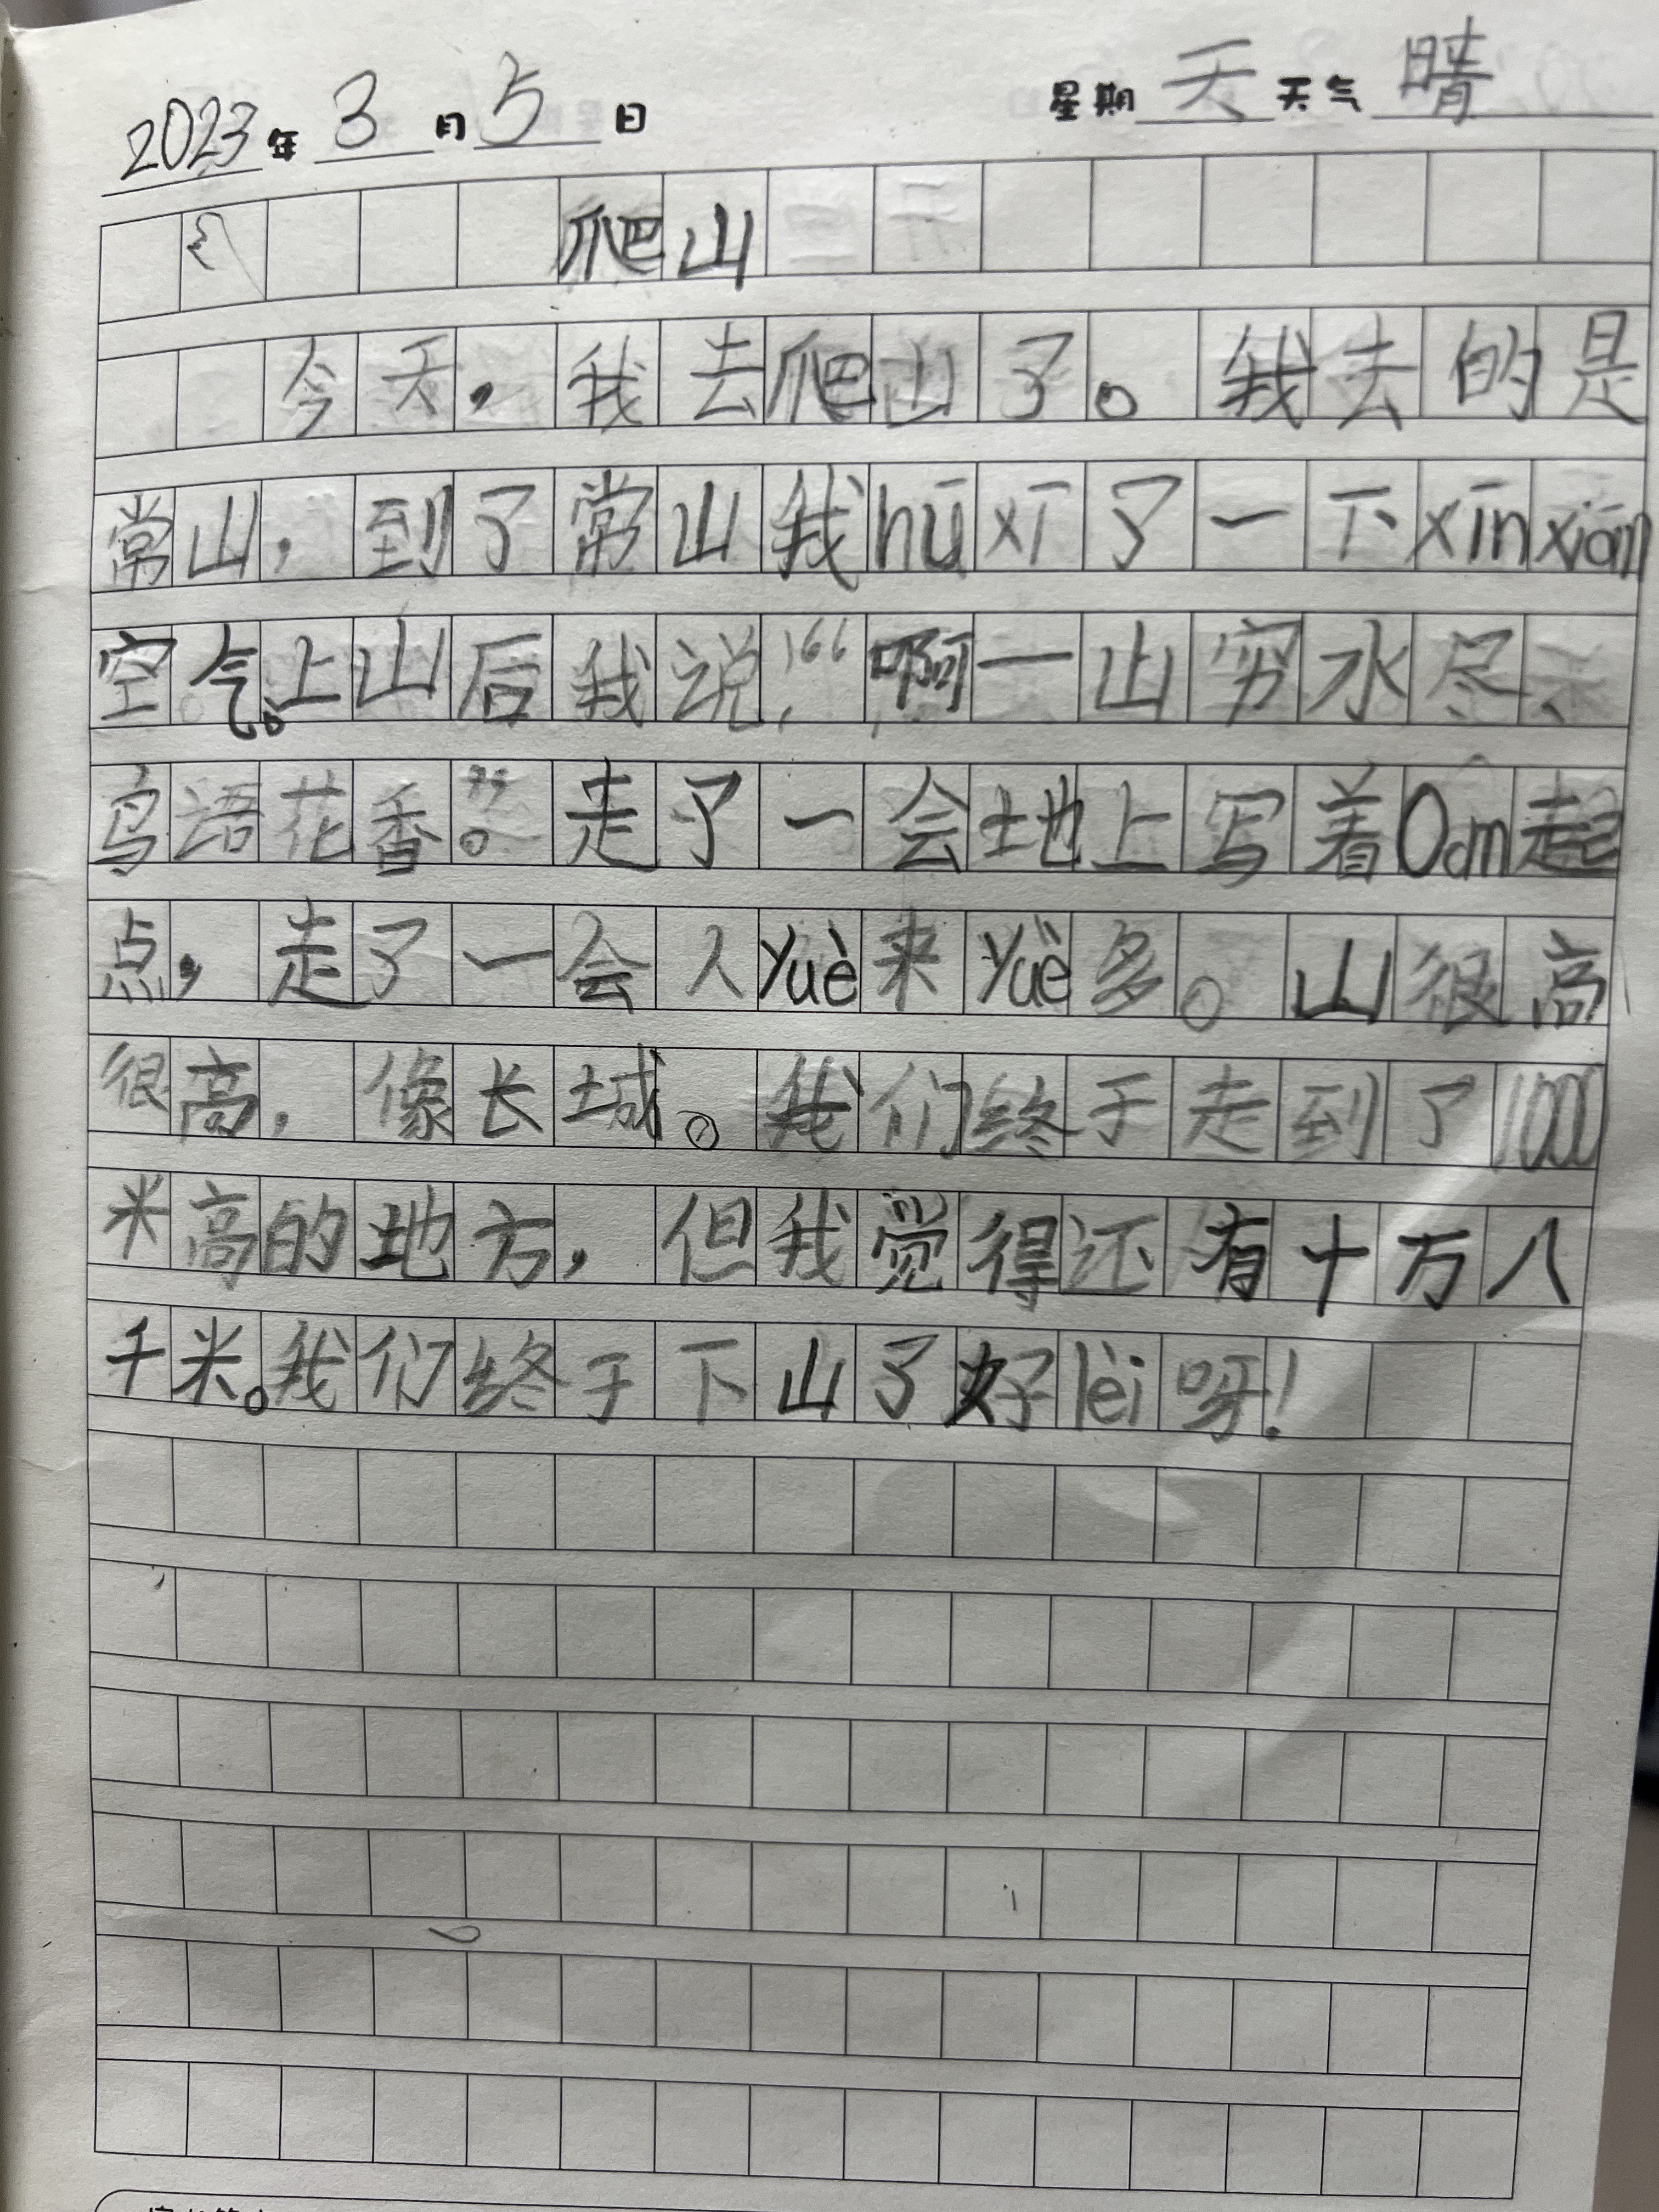 2023年3月5日 星期天 天气晴
爬山
今天，我去爬山了。我去的是
常山，到了常山我hū xī了一下xīn xiān
空气。上山后我说，“啊一山穷水尽、
鸟语花香。”走了一会地上写着0cm起
点，走了一会人yuè来yuè多。山很高
很高，像长城。我们终于走到了1000
米高的地方，但我觉得还有十万八
千米。我们终于下山了好lèi呀！